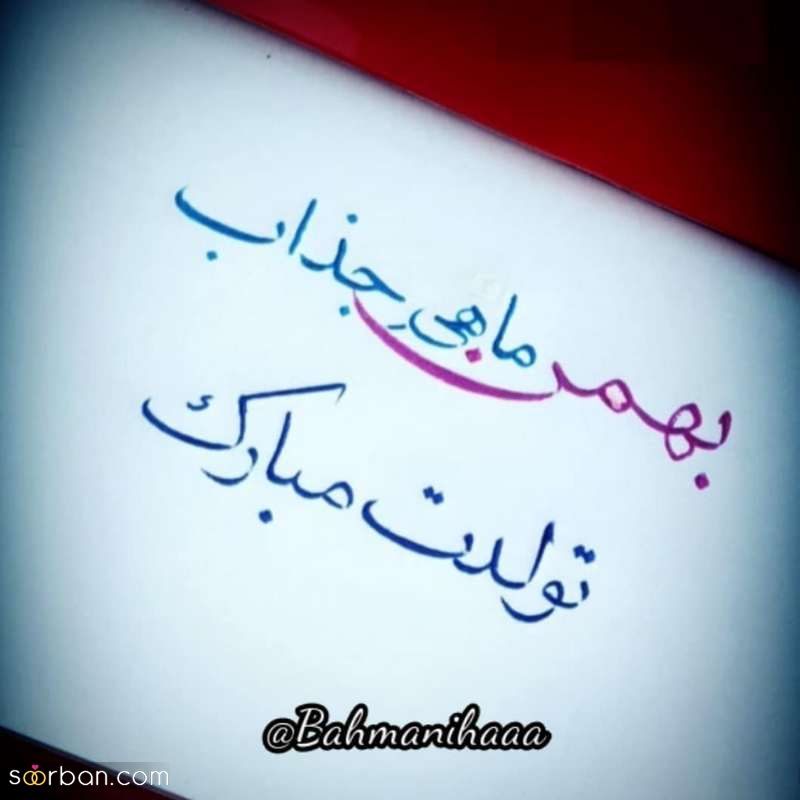 بهمن ماهیِ جذاب
تولدت مبارک
@Bahmanihaaa
soorban.com